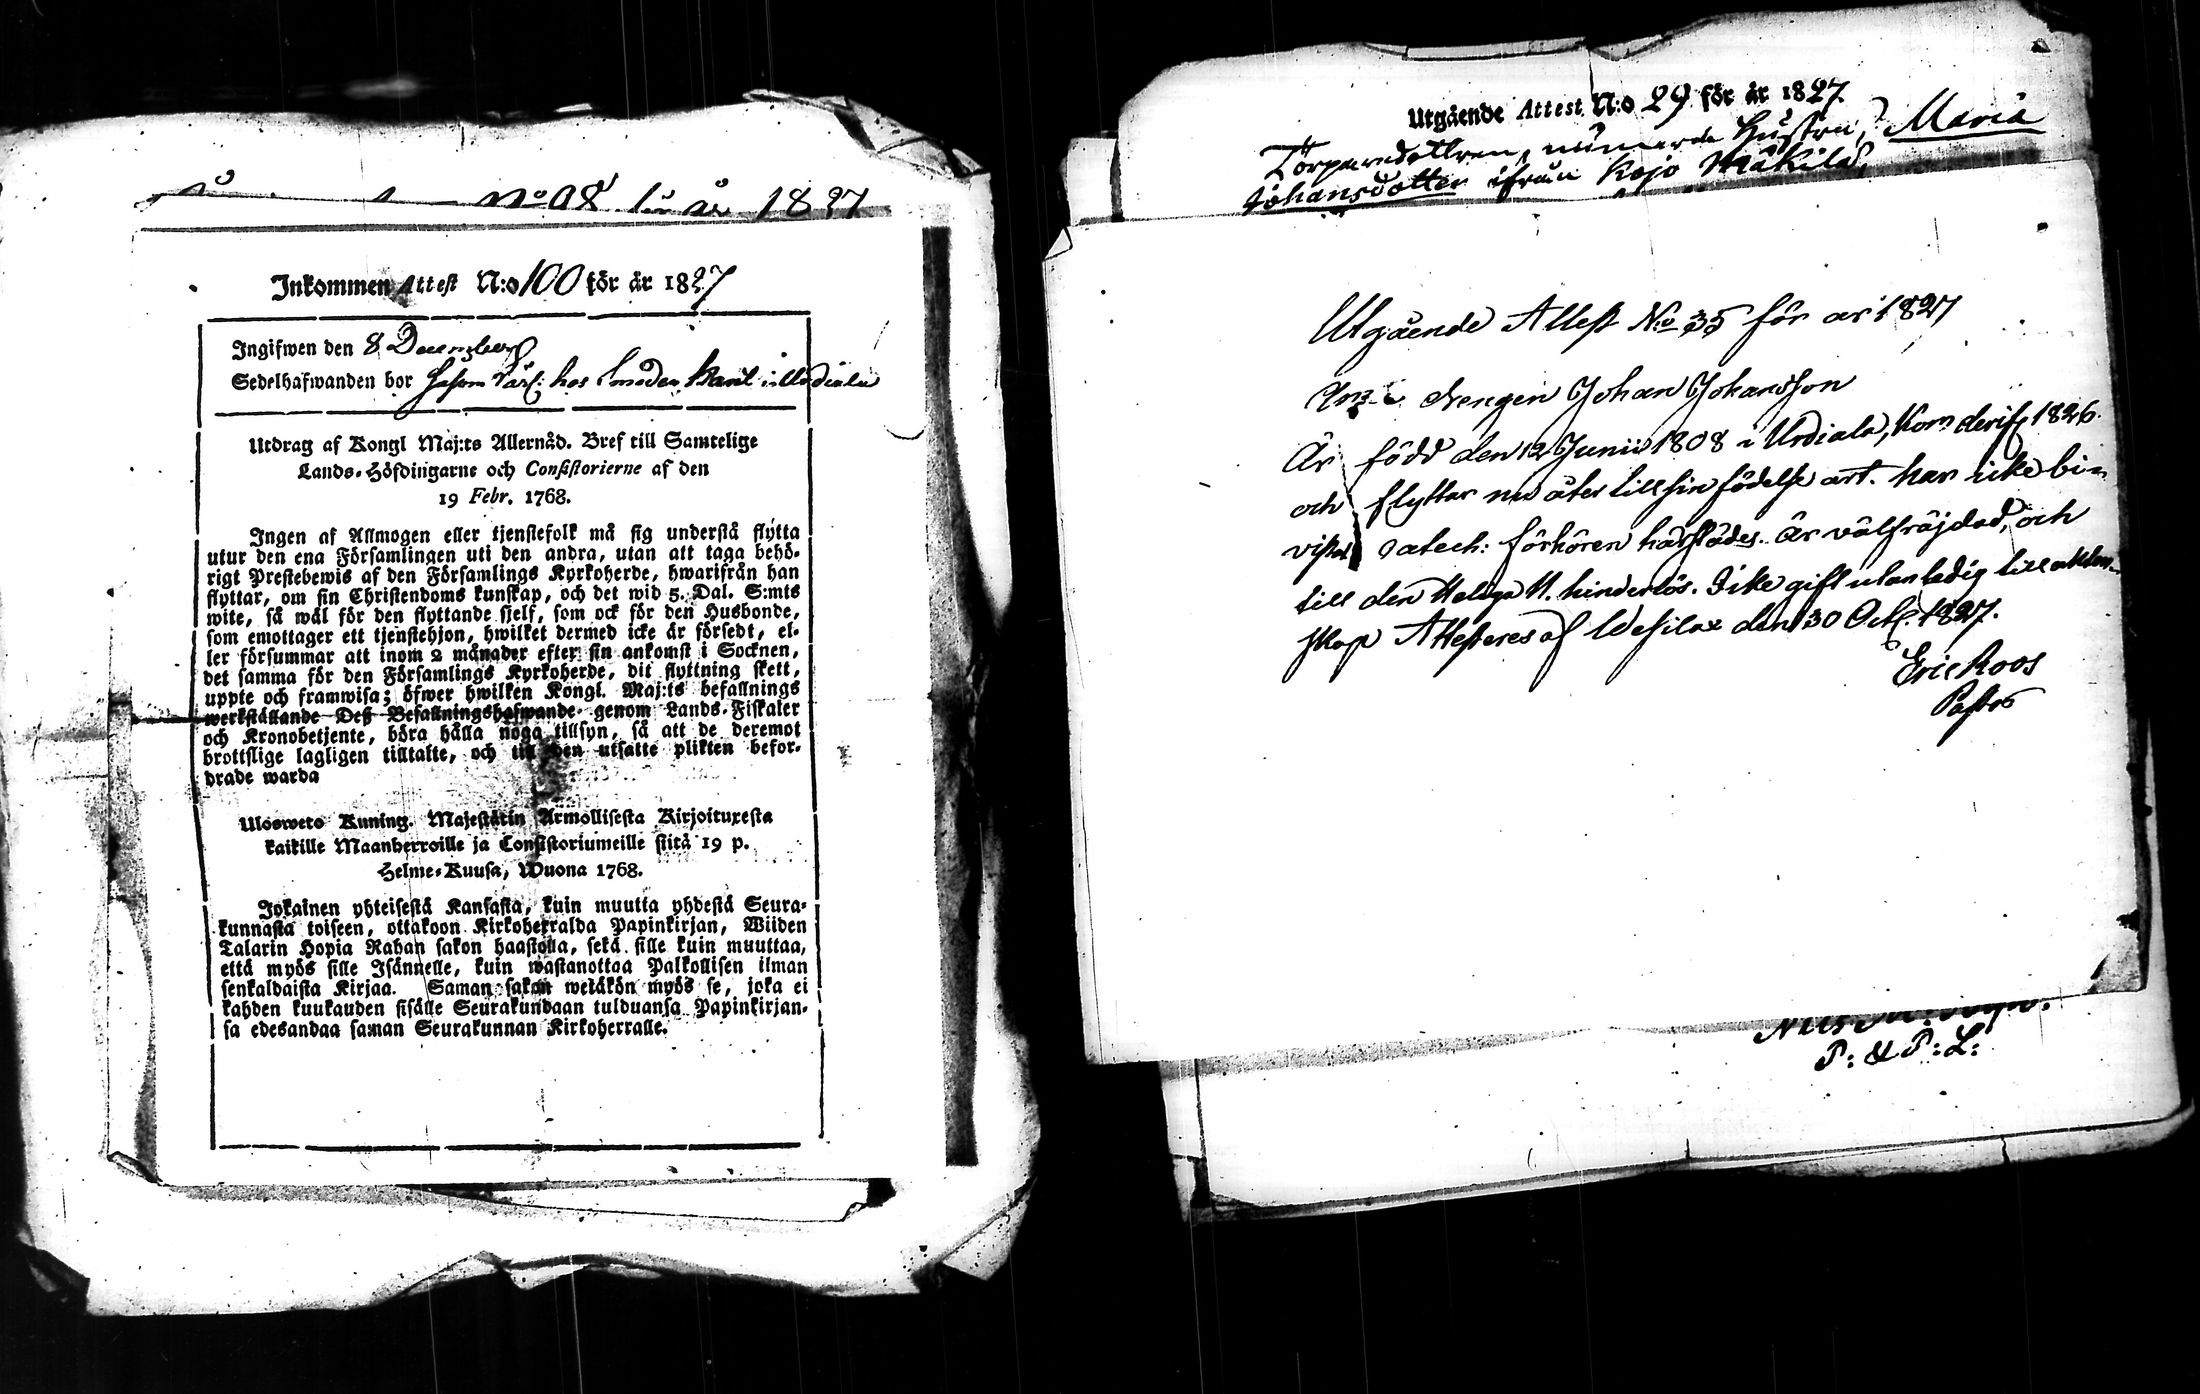 N:o 98 för år 1827
Inkommen Attest N:o 100 för år 1827
Ingifwen den 8 December
Sedelhafwanden bor såsom Lärl: hos Smeden i Urdiala
Utdrag af Kongl Maj:ts Allernåd. Bref till Samtelige
Lands-Höfdingarne och Consistorierne af den
19 Febr. 1768.
Ingen af Allmogen eller tjenstefolk må sig understå flytta
utur den ena Församlingen uti den andra, utan att taga behö-
rigt Prestebewis af den Församlings Kyrkoherde, hwarifrån han
flyttar, om sin Christendoms kunskap, och det wid 5. Dal. S:mts
wite, så wäl för den flyttande sjelf, som ock för den Husbonde,
som emottager ett tjenstehjon, hwilket dermed icke är försedt, el-
ler försummar att inom 2 månader efter sin ankomst i Socknen,
det samma för den Församlings Kyrkoherde, dit flyttning skett,
uppte och framwisa; öfwer hwilken Kongl. Maj:ts befallnings
werkställande Deß Befallningshafwande genom Lands-Fiskaler
och Kronobetjente, böra hålla noga tillsyn, så att de deremot
brottslige lagligen tilltalte, och till den utsatte plikten befor-
drade warda
Ulosweto Kuning. Majestätin Armollisesta Kirjoituxesta
kaikille Maanherroille ja Consistoriumeille siitä 19 p.
Helme-Kuusa, Wuona 1768.
Jokainen yhteisestä Kansasta, kuin muutta yhdestä Seura-
kunnasta toiseen, ottakoon Kirkoherralda Papinkirjan, Wiiden
Talarin Hopia Rahan sakon haastolla, sekä sille kuin muuttaa,
että myös sille Isännelle, kuin wastanottaa Palkollisen ilman
senkaldaista Kirjaa. Saman sakon wetäkön myös se, joka ei
kahden kuukauden sisälle Seurakundaan tulduansa Papinkirjan-
sa edesandaa saman Seurakunnan Kirkoherralle.
Utgående Attest N:o 29 för år 1827
Torparedottren, numera Hustru, Maria
Johansdotter ifrån Kojo Mäkilä,
Utgående Attest No 35 för år 1827
Drengen Johan Johansson
Är född den 12 Junii 1808 i Urdiala, kom derif. 1826.
och flyttar nu åter till sin födelse ort. har icke bi-
vistat Catech: förhören härstädes. är välfräjdad, och
till den Heliga N. hinderlös. Icke gift utan ledig till äkten-
skap Attesteres af Wesilax den 30 Oct. 1827.
Eric Roos
Pastor
P: & P: L: